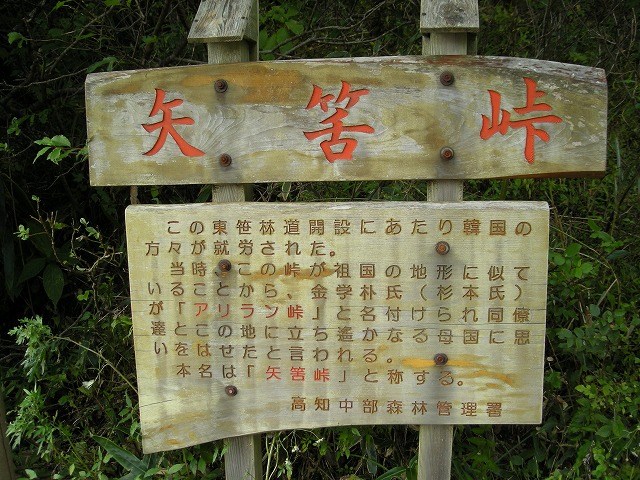 矢筈峠
この東笹林道開設にあたり韓国の
方々が就労された。
当時この峠が祖国の地形に似て
いることから、金学朴氏(杉本氏)
が「アリラン峠」と名付けられ同僚
達とこの地に立ち遙かなる母国に思
いをはせたと言われる。
本名は「矢筈峠」と称する。
高知中部森林管理署